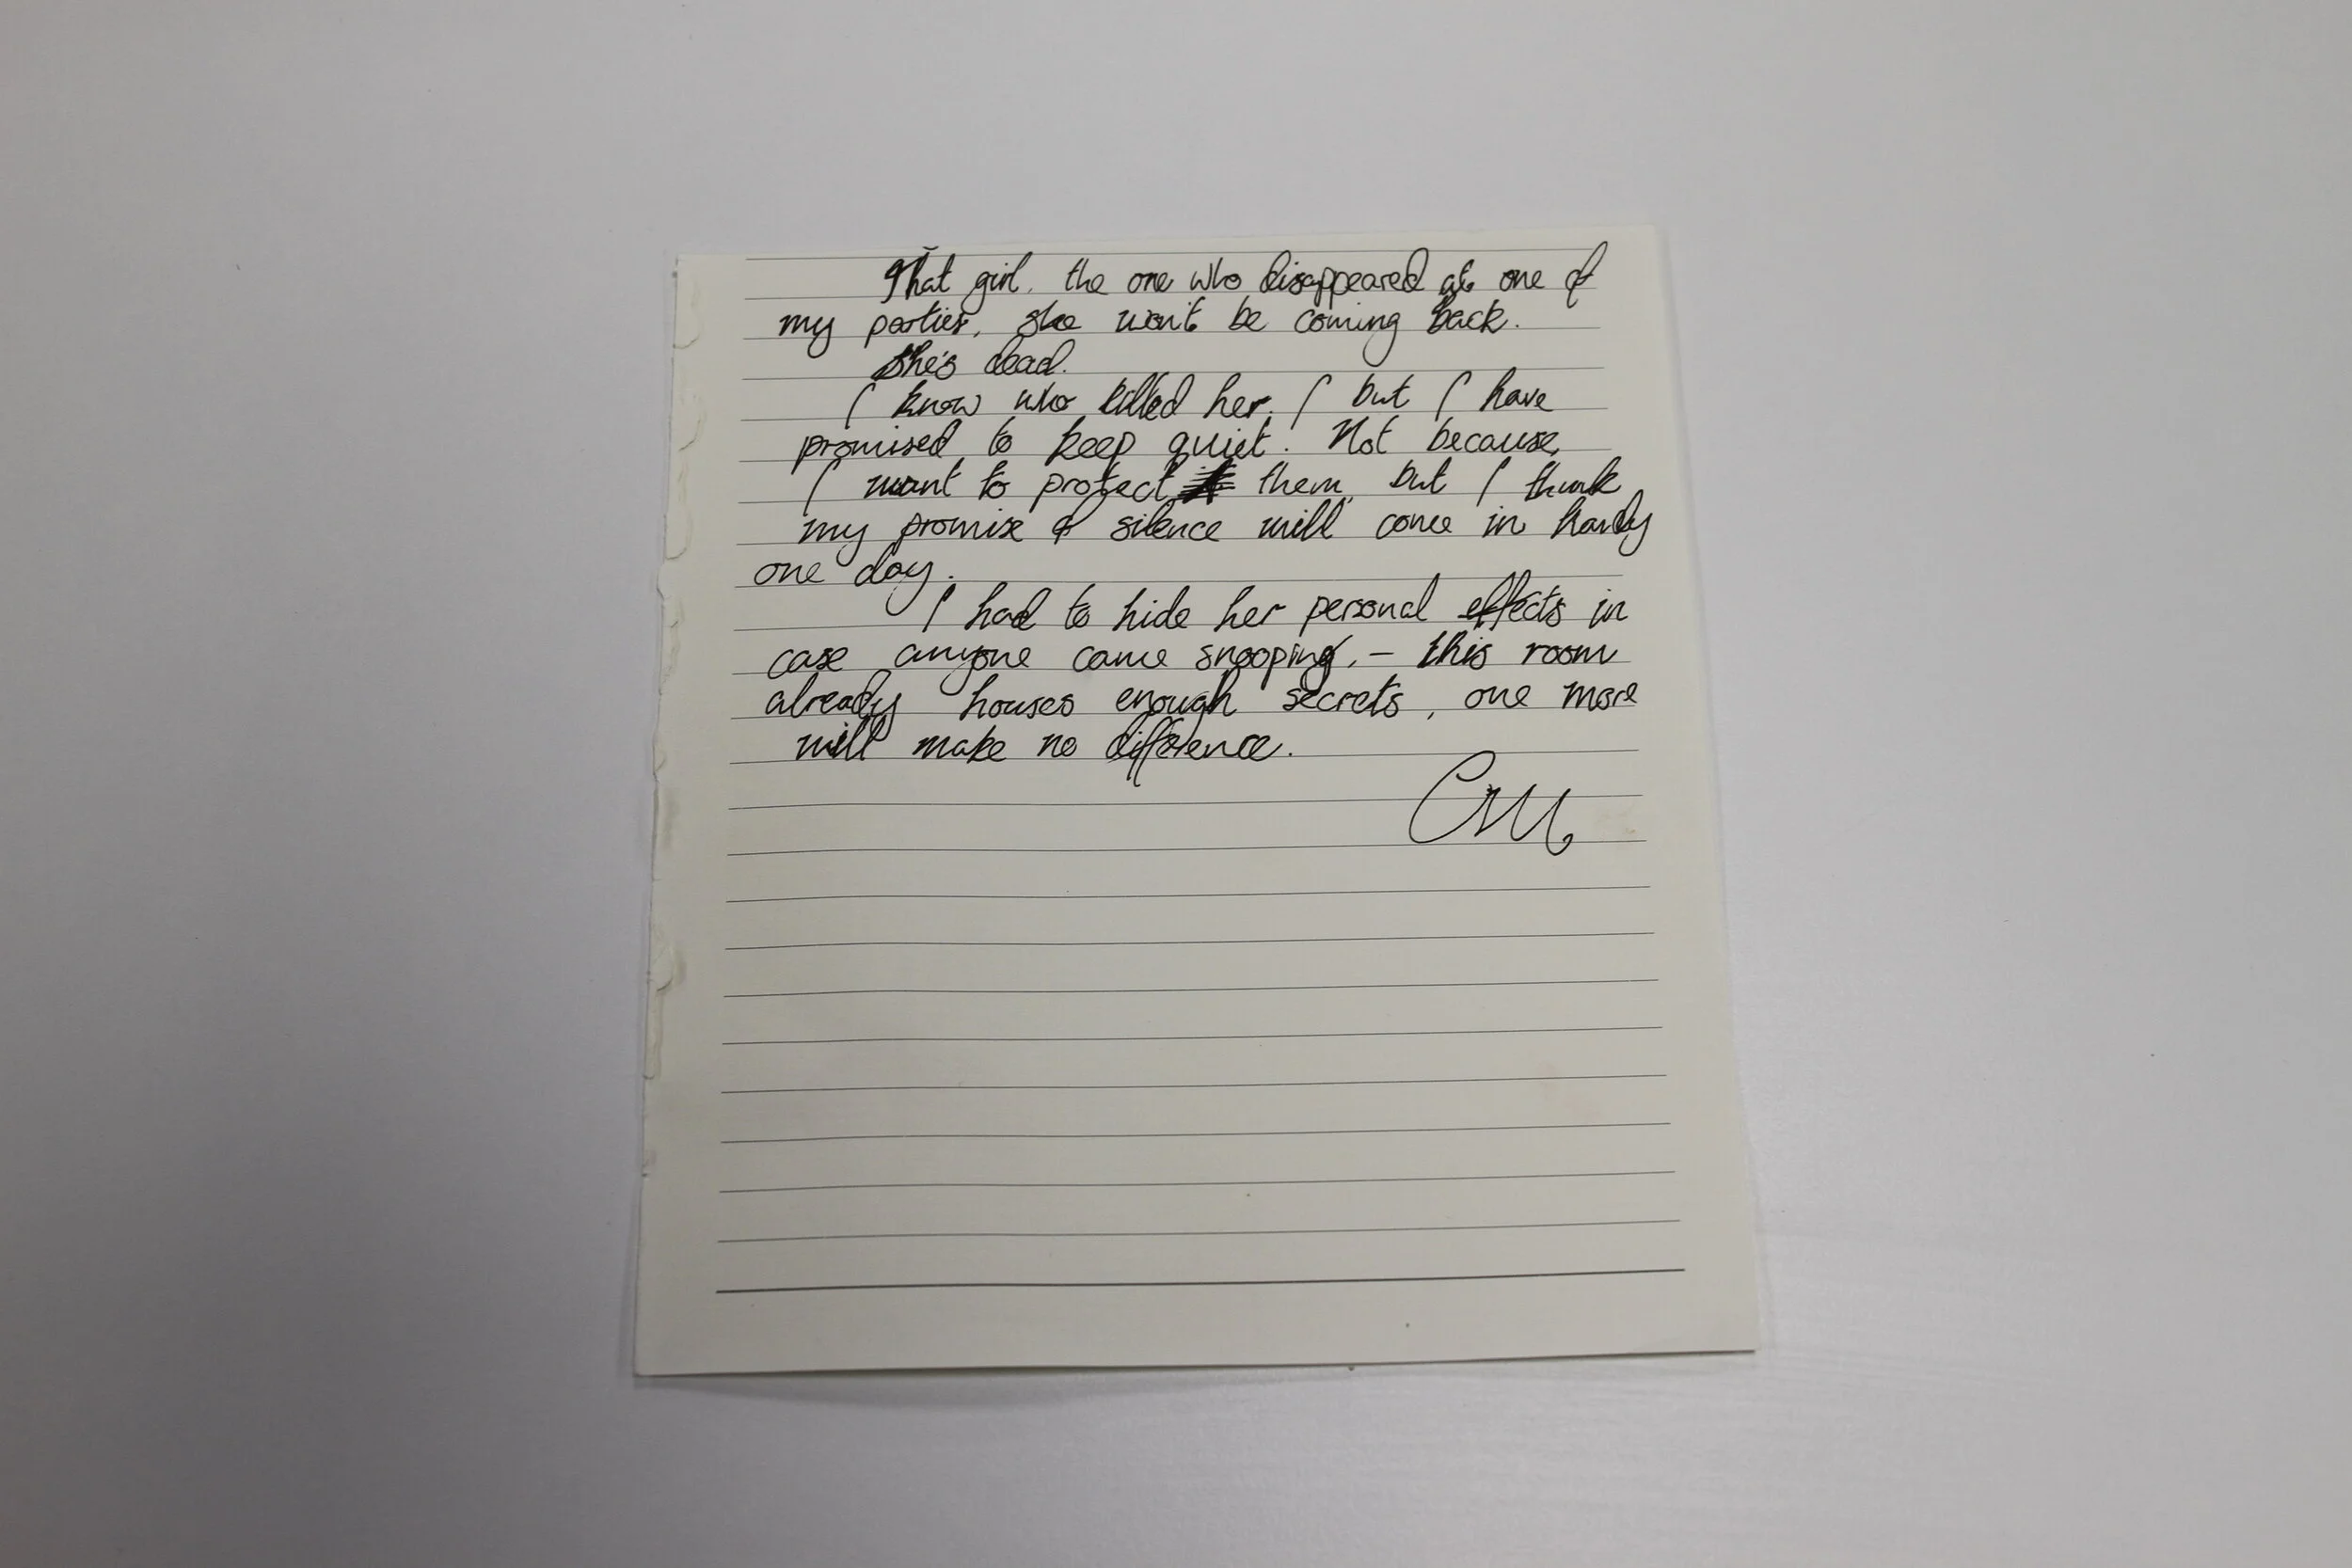 That girl, the one who disappeared at one of
my parties, she won't be coming back.
She's dead.
I know who killed her, but I have
promised to keep quiet. Not because
I want to protect them, but I think
my promise of silence will come in handy
one day.
I had to hide her personal effects in
case anyone came snooping. - this room
already houses enough secrets, one more
will make no difference.
CM